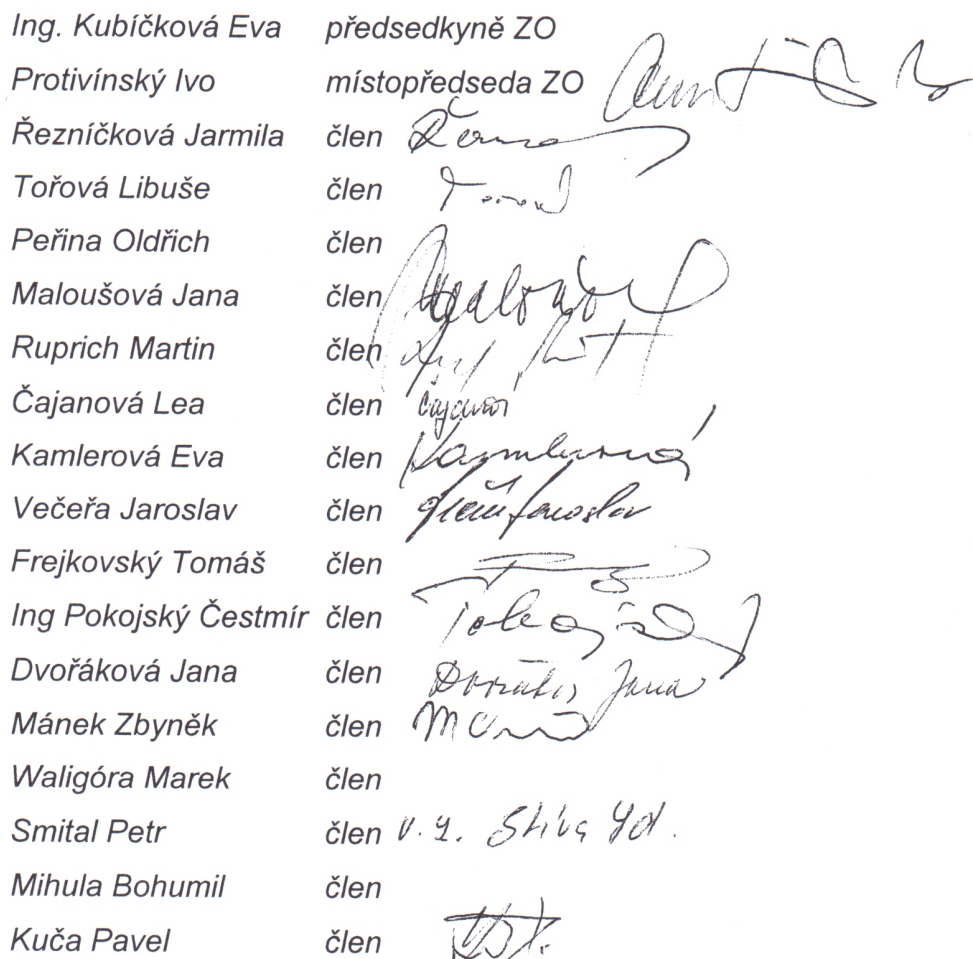 Ing. Kubíčková Eva předsedkyně ZO
Protivínský Ivo místopředseda ZO
Řezníčková Jarmila člen
Tořová Libuše člen
Peřina Oldřich člen
Maloušová Jana člen
Ruprich Martin člen
Čajanová Lea člen
Kamlerová Eva člen
Večeřa Jaroslav člen Jaroslav
Frejkovský Tomáš člen
Ing Pokojský Čestmír člen
Dvořáková Jana člen Jana
Mánek Zbyněk člen
Waligóra Marek člen
Smital Petr člen
Mihula Bohumil člen
Kuča Pavel člen